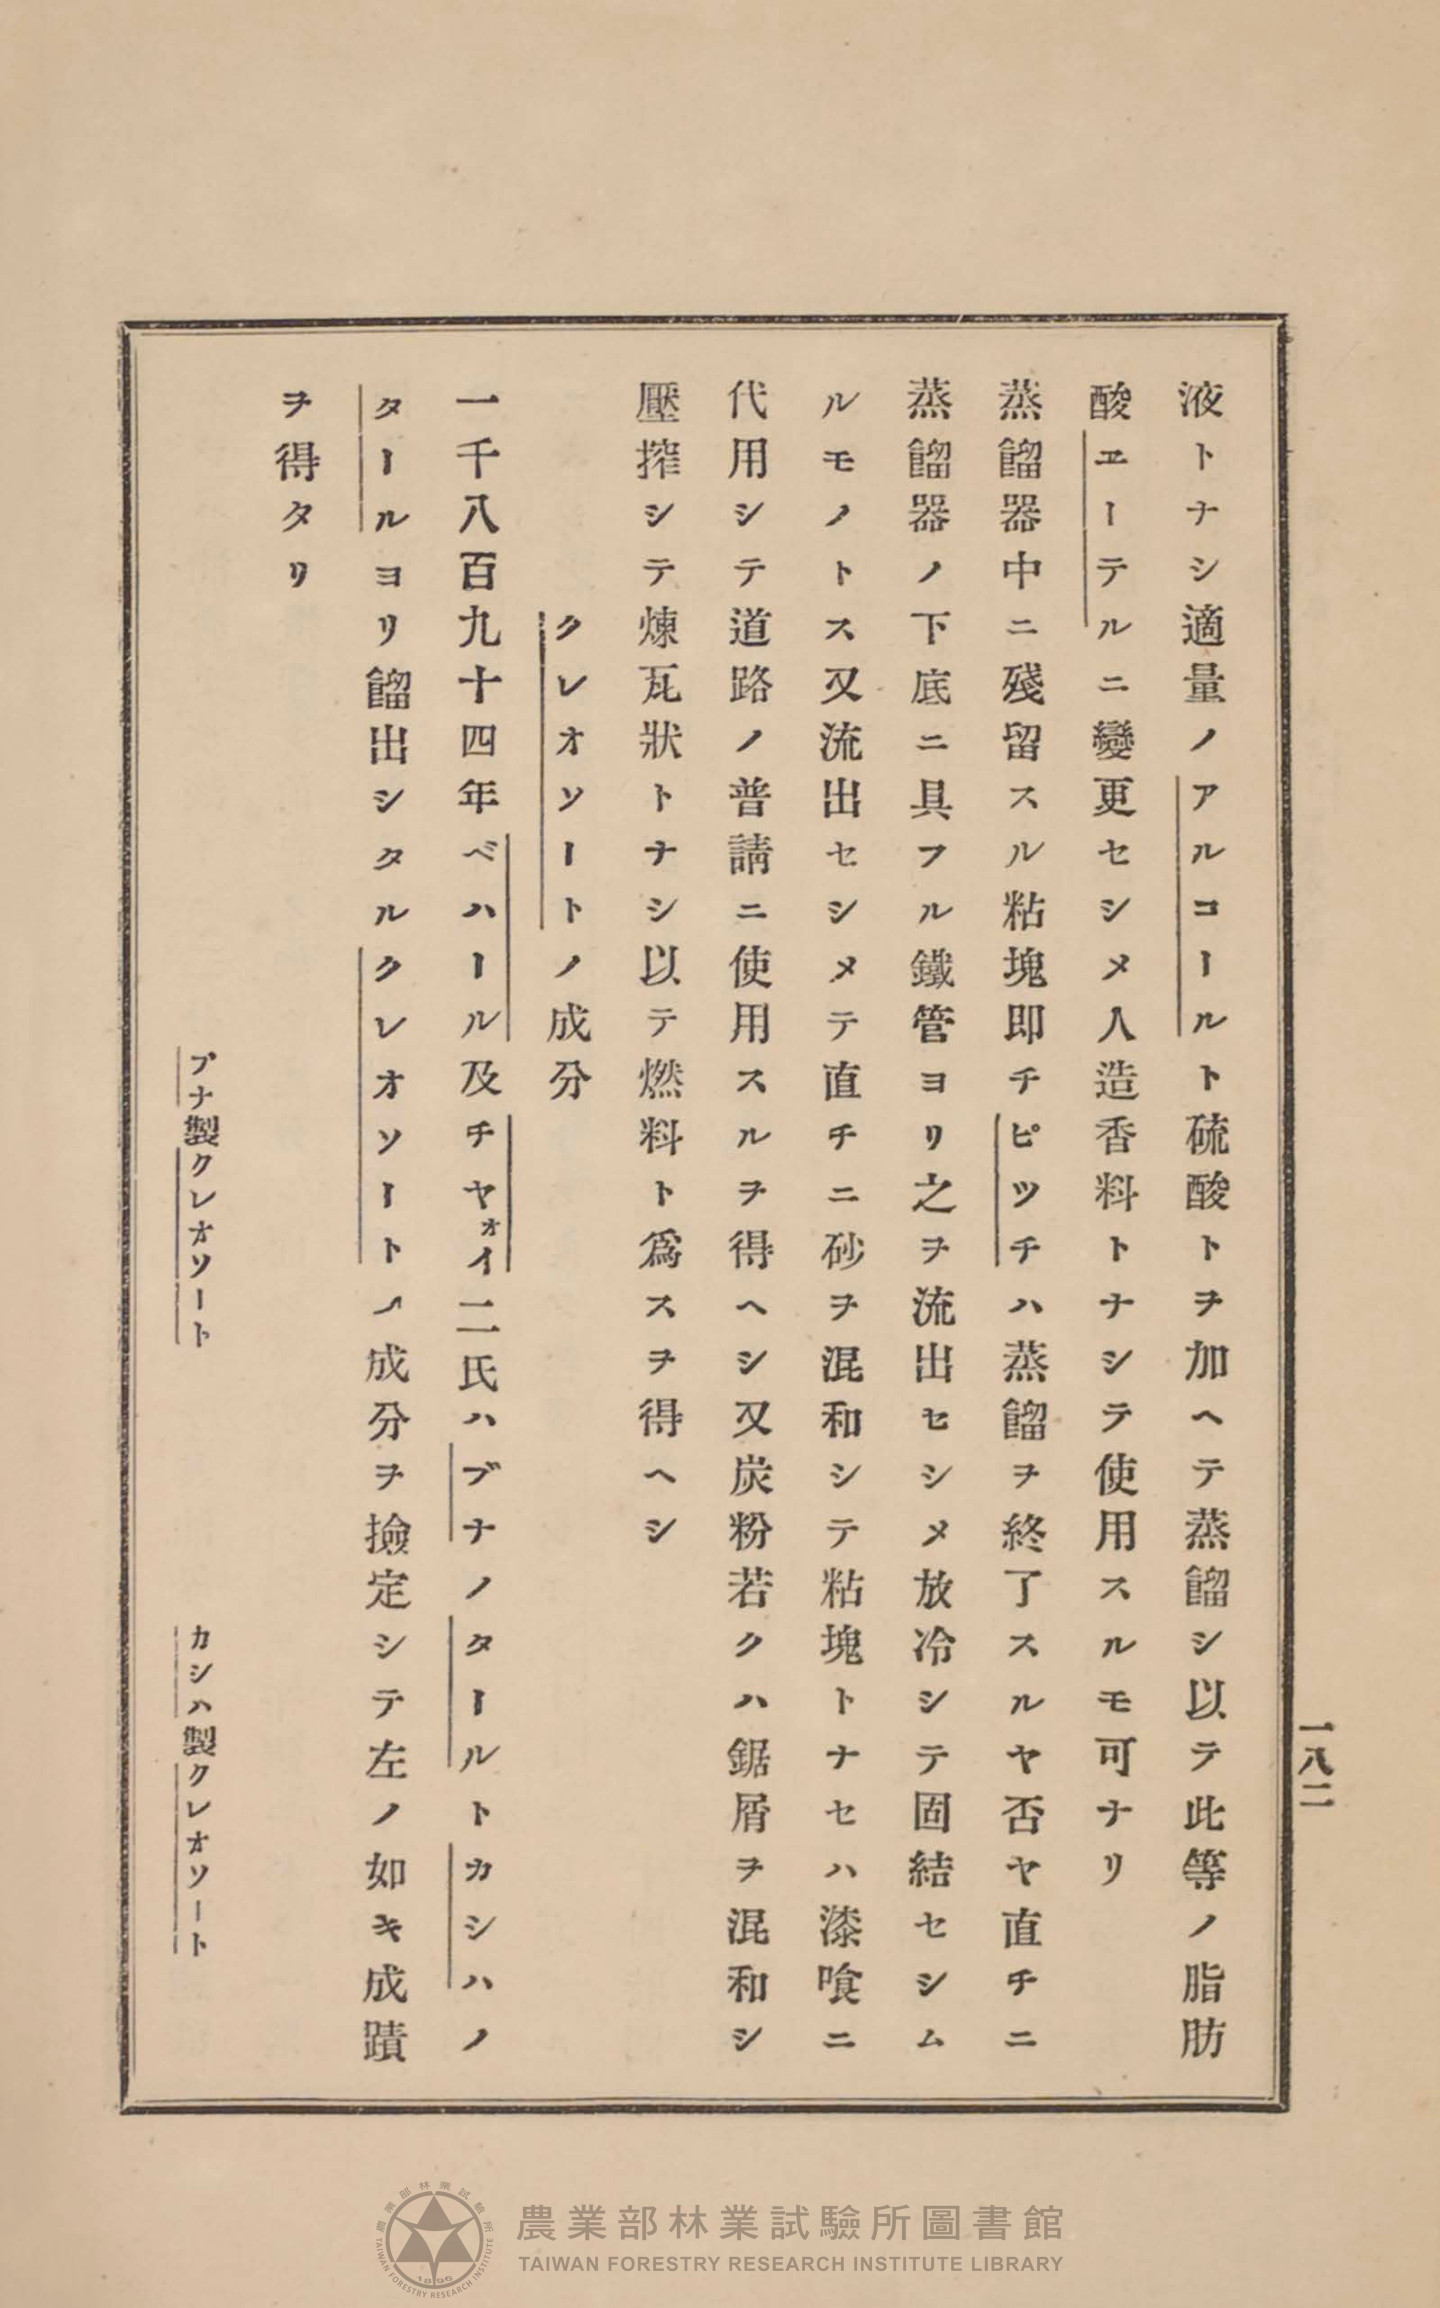 液トナシ適量ノアルコールト硫酸トヲ加ヘテ蒸餾シ以テ此等ノ脂肪
酸エーテルニ變更セシメ人造香料トナシテ使用スルモ可ナリ
蒸餾器中ニ殘留スル粘塊即チピツチハ蒸餾ヲ終了スルヤ否ヤ直チニ
蒸餾器ノ下底ニ具フル鐵管ヨリ之ヲ流出セシメ放冷シテ固結セシム
ルモノトス又流出セシメテ直チニ砂ヲ混和シテ粘塊トナセハ漆喰ニ
代用シテ道路ノ普請ニ使用スルヲ得ヘシ又炭粉若クハ鋸屑ヲ混和シ
壓搾シテ煉瓦狀トナシ以テ燃料ト爲スヲ得ヘシ
クレオソートノ成分
一千八百九十四年ベハール及チヤォイ二氏ハブナノタールトカシハノ
タールヨリ餾出シタルクレオソートノ成分ヲ撿定シテ左ノ如キ成蹟
ヲ得タリ
ブナ製クレオソート
カシハ製クレオソート
一八二
農業部林業試驗所圖書館
TAIWAN FORESTRY RESEARCH INSTITUTE LIBRARY
農業部林業試驗所
TAIWAN FORESTRY RESEARCH INSTITUTE
1896